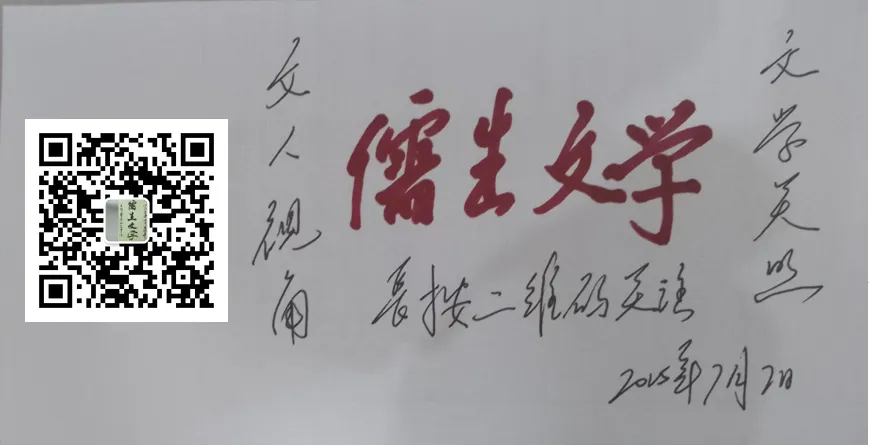 文人视角
儒生文学
文学关照
長按二维码关注
2025年7月2日